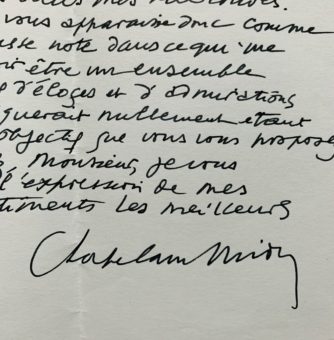 vous apparaisse donc comme
note dans ce que
être un ensemble
d'éloges et d'admirations
nullement étant
que vous vous propose
Monsieur, je vous
l'expression de mes
timents les meilleurs
Chapelain Midy